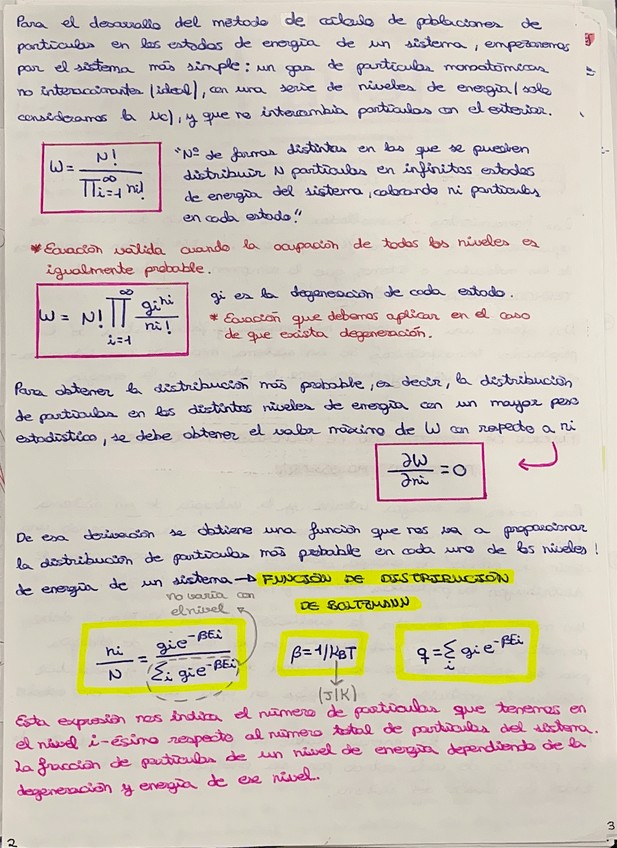 Para el desarrollo del método de cálculo de poblaciones de
partículas en los estados de energía de un sistema, empezaremos
por el sistema más simple: un gas de partículas monoatómicas
no interaccionantes (ideal), con una serie de niveles de energía (solo
consideramos la uc), y que no intercambia partículas con el exterior.
W = N! / ∏i=1^∞ ni!
"Nº de formas distintas en las que se pueden
distribuir N partículas en infinitos estados
de energía del sistema, colocando ni partículas
en cada estado."
* Ecuación válida cuando la ocupación de todos los niveles es
igualmente probable.
W = N! ∏i=1^∞ gi^ni / ni!
gi es la degeneración de cada estado.
* Ecuación que debemos aplicar en el caso
de que exista degeneración.
Para obtener la distribución más probable, es decir, la distribución
de partículas en los distintos niveles de energía con un mayor peso
estadístico, se debe obtener el valor máximo de W con respecto a ni
∂W/∂ni = 0
De esa derivación se obtiene una función que nos va a proporcionar
la distribución de partículas más probable en cada uno de los niveles
de energía de un sistema → FUNCIÓN DE DISTRIBUCIÓN
DE BOLTZMANN
no varía con
el nivel
ni/N = gi e^-βEi / Σi gi e^-βEi
β = 1/kBT
q = Σi gi e^-βEi
(J/K)
Esta expresión nos indica el número de partículas que tenemos en
el nivel i-ésimo respecto al número total de partículas del sistema.
La fracción de partículas de un nivel de energía dependiendo de la
degeneración y energía de ese nivel.
2
3